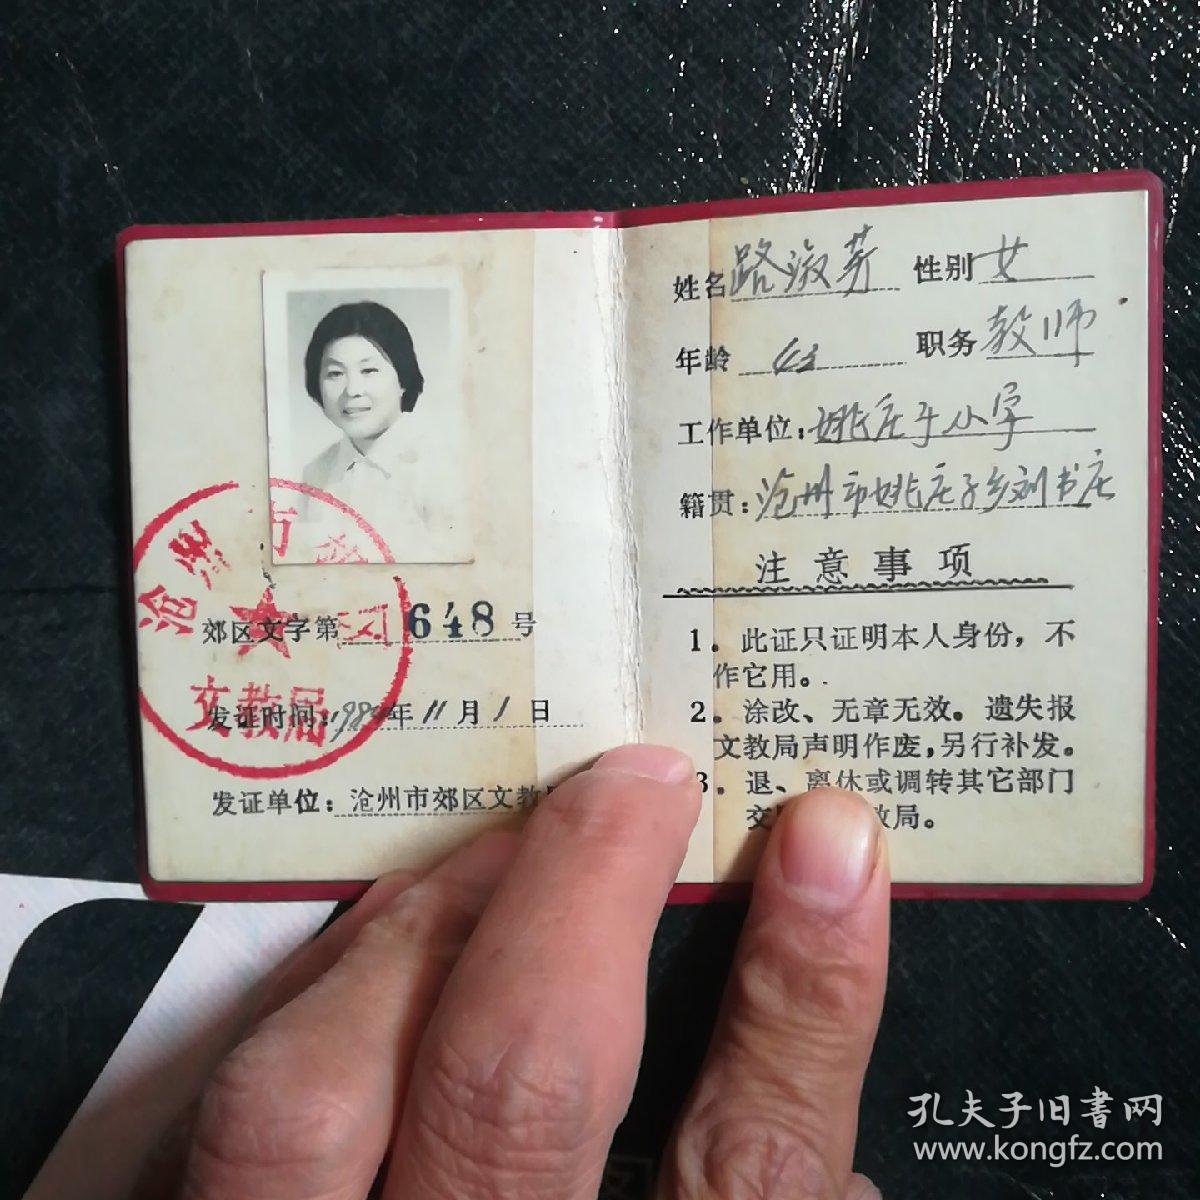 沧州市郊区
文教局
郊区文字第648号
发证时间:198 年11月1日
发证单位:沧州市郊区文教
姓名路淑芳 性别女
年龄43 职务教师
工作单位:姚庄子小学
籍贯:沧州市姚庄子乡刘书庄
注意事项
1.此证只证明本人身份,不
作它用。
2.涂改、无章无效。遗失报
文教局声明作废,另行补发。
3.退、离休或调转其它部门
交 教局。
孔夫子旧書网
www.kongfz.com